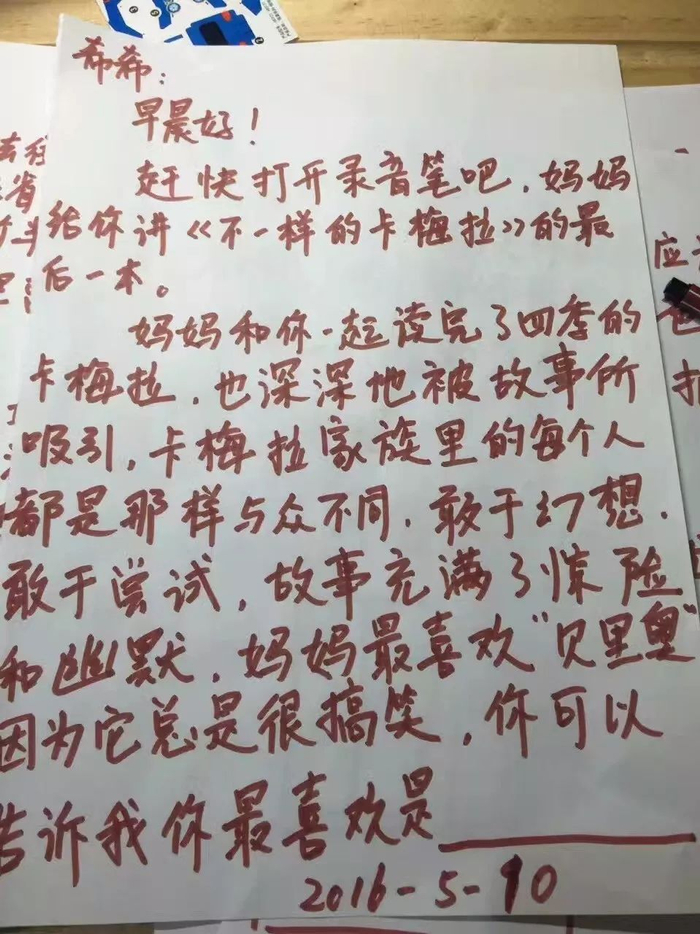 希希：
早晨好！
赶快打开录音笔吧，妈妈
给你讲《不一样的卡梅拉》的最
后一本。
妈妈和你一起读完了四季的
卡梅拉，也深深地被故事所
吸引，卡梅拉家族里的每个人
都是那样与众不同，敢于幻想，
敢于尝试，故事充满了惊险
和幽默，妈妈最喜欢"贝里奥"
因为它总是很搞笑，你可以
告诉我你最喜欢是
2016-5-10